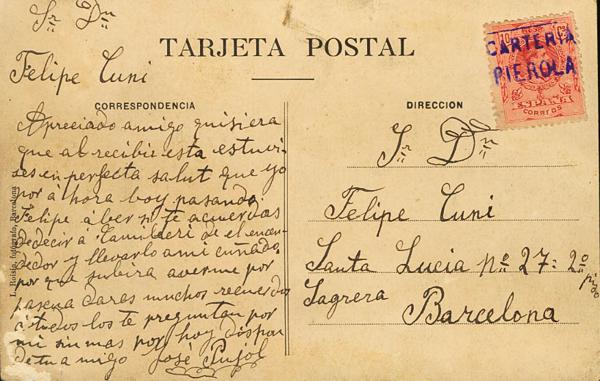 Sr Dn
TARJETA POSTAL
Felipe Cuni
CORRESPONDENCIA
Apreciado amigo quisiera
que al recibir esta estuvi
eses en perfecta salut que yo
por ahora boy pasando
Felipe á ber si te acuerdas
de decir á el encen
dedor y llevarlo ami cuñado
por que subira averme por
pascua dares muchos recuerdos
á todos los te preguntan por
mi sin mas por hoy dispon
de tu amigo José Pujol
fotógrafo, Barcelona
DIRECCION
Sr Dn
Felipe Cuni
Santa Lucia nº 27: 2º
piso
Sagrera Barcelona
10 10
CARTERIA
PIEROLA
ESPAÑA
CORREOS